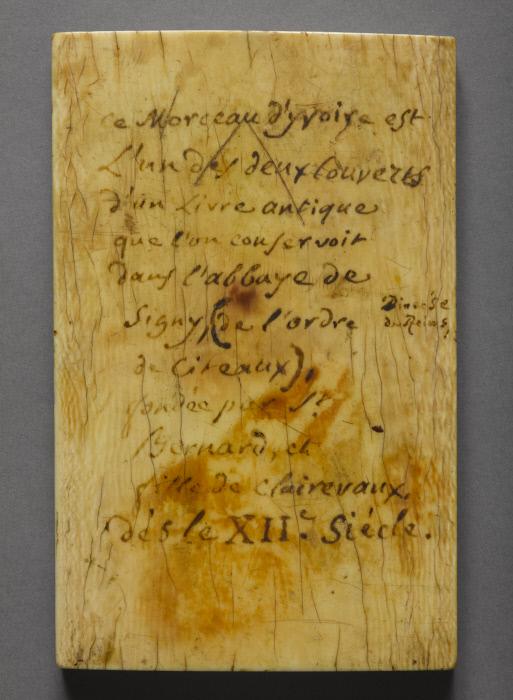 ce Morceau d'yvoire est
L'un des deux couverts
d'un Livre antique
que l'on conservoit
dans l'abbaye de
Signy, (de l'ordre
Diocèse
de Reims,
de Citeaux),
fondée par St
Bernard, et
fille de Clairevaux,
dés le XIIe. Siécle.